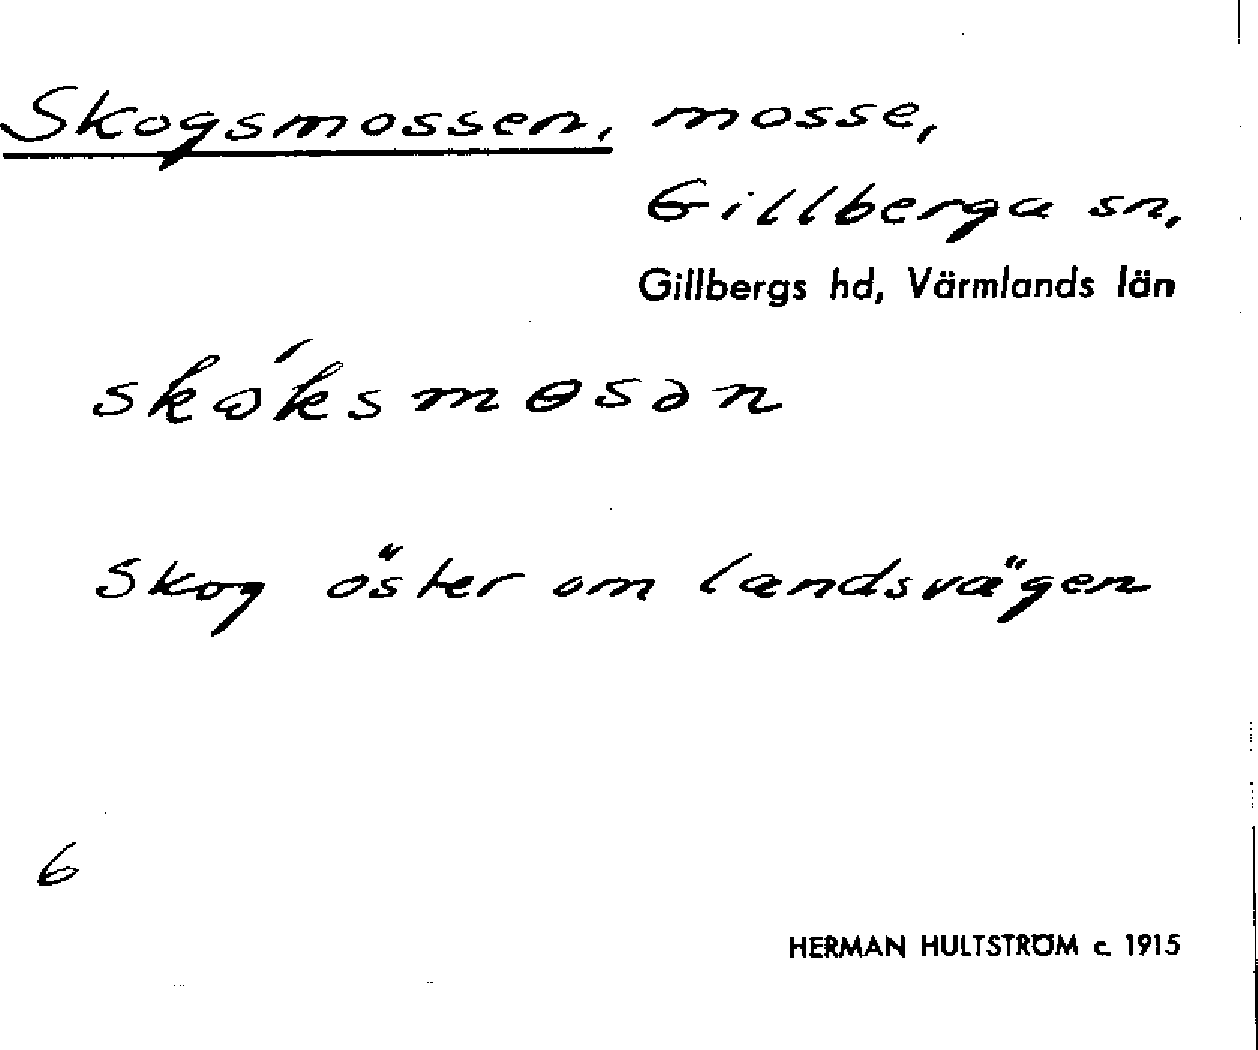 Skogsmossen, mosse,
Gillberga sn,
Gillbergs hd, Värmlands län
skɷ́ksmɵsən
Skog öster om landsvägen
6
HERMAN HULTSTRÖM c. 1915